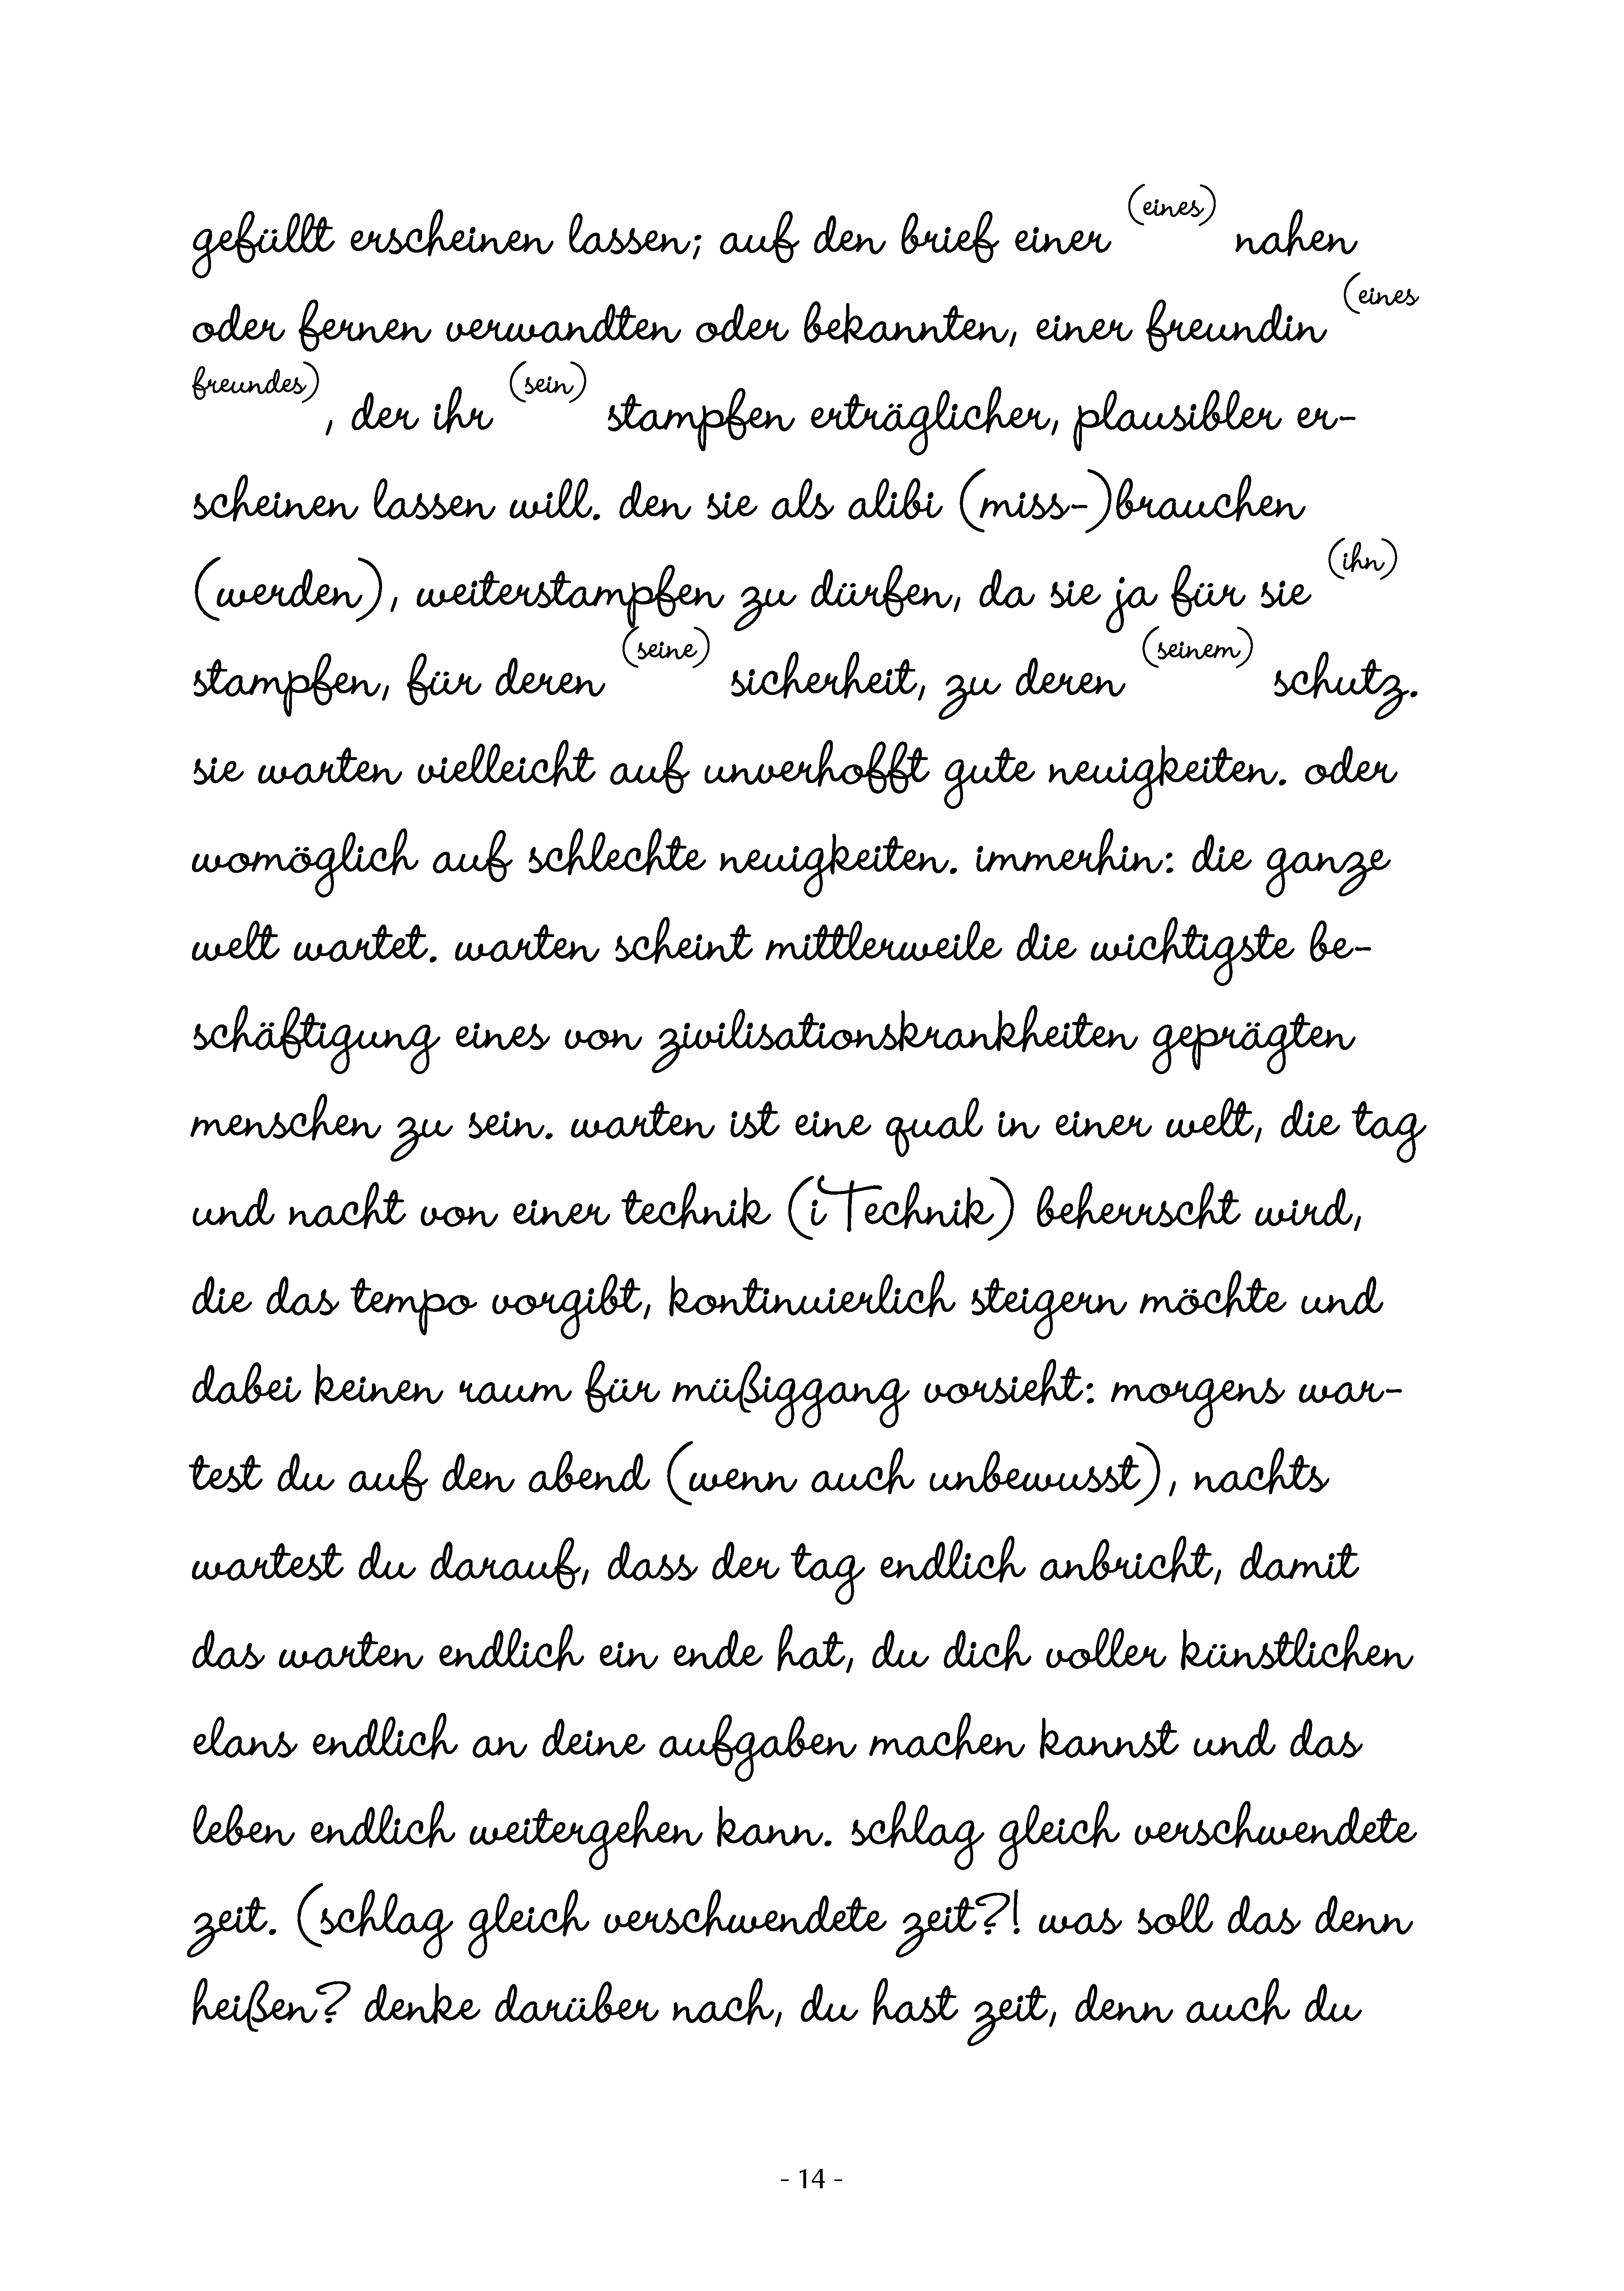 gefüllt erscheinen lassen; auf den brief einer (eines) nahen
oder fernen verwandten oder bekannten, einer freundin (eines
freundes), der ihr (sein) stampfen erträglicher, plausibler er-
scheinen lassen will. den sie als alibi (miss-)brauchen
(werden), weiterstampfen zu dürfen, da sie ja für sie (ihn)
stampfen, für deren (seine) sicherheit, zu deren (seinem) schutz.
sie warten vielleicht auf unverhofft gute neuigkeiten. oder
womöglich auf schlechte neuigkeiten. immerhin: die ganze
welt wartet. warten scheint mittlerweile die wichtigste be-
schäftigung eines von zivilisationskrankheiten geprägten
menschen zu sein. warten ist eine qual in einer welt, die tag
und nacht von einer technik (iTechnik) beherrscht wird,
die das tempo vorgibt, kontinuierlich steigern möchte und
dabei keinen raum für müßiggang vorsieht: morgens war-
test du auf den abend (wenn auch unbewusst), nachts
wartest du darauf, dass der tag endlich anbricht, damit
das warten endlich ein ende hat, du dich voller künstlichen
elans endlich an deine aufgaben machen kannst und das
leben endlich weitergehen kann. schlag gleich verschwendete
zeit. (schlag gleich verschwendete zeit?! was soll das denn
heißen? denke darüber nach, du hast zeit, denn auch du
- 14 -